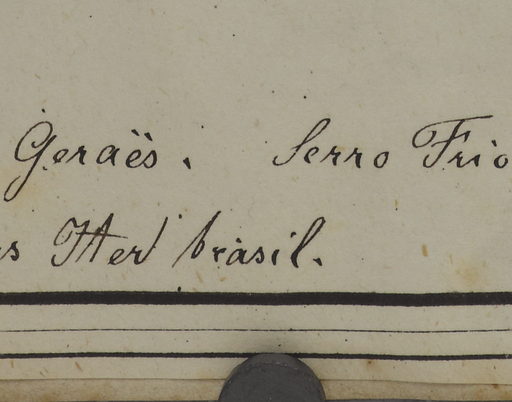 Geraës. Serro Frio
Iter brasil.